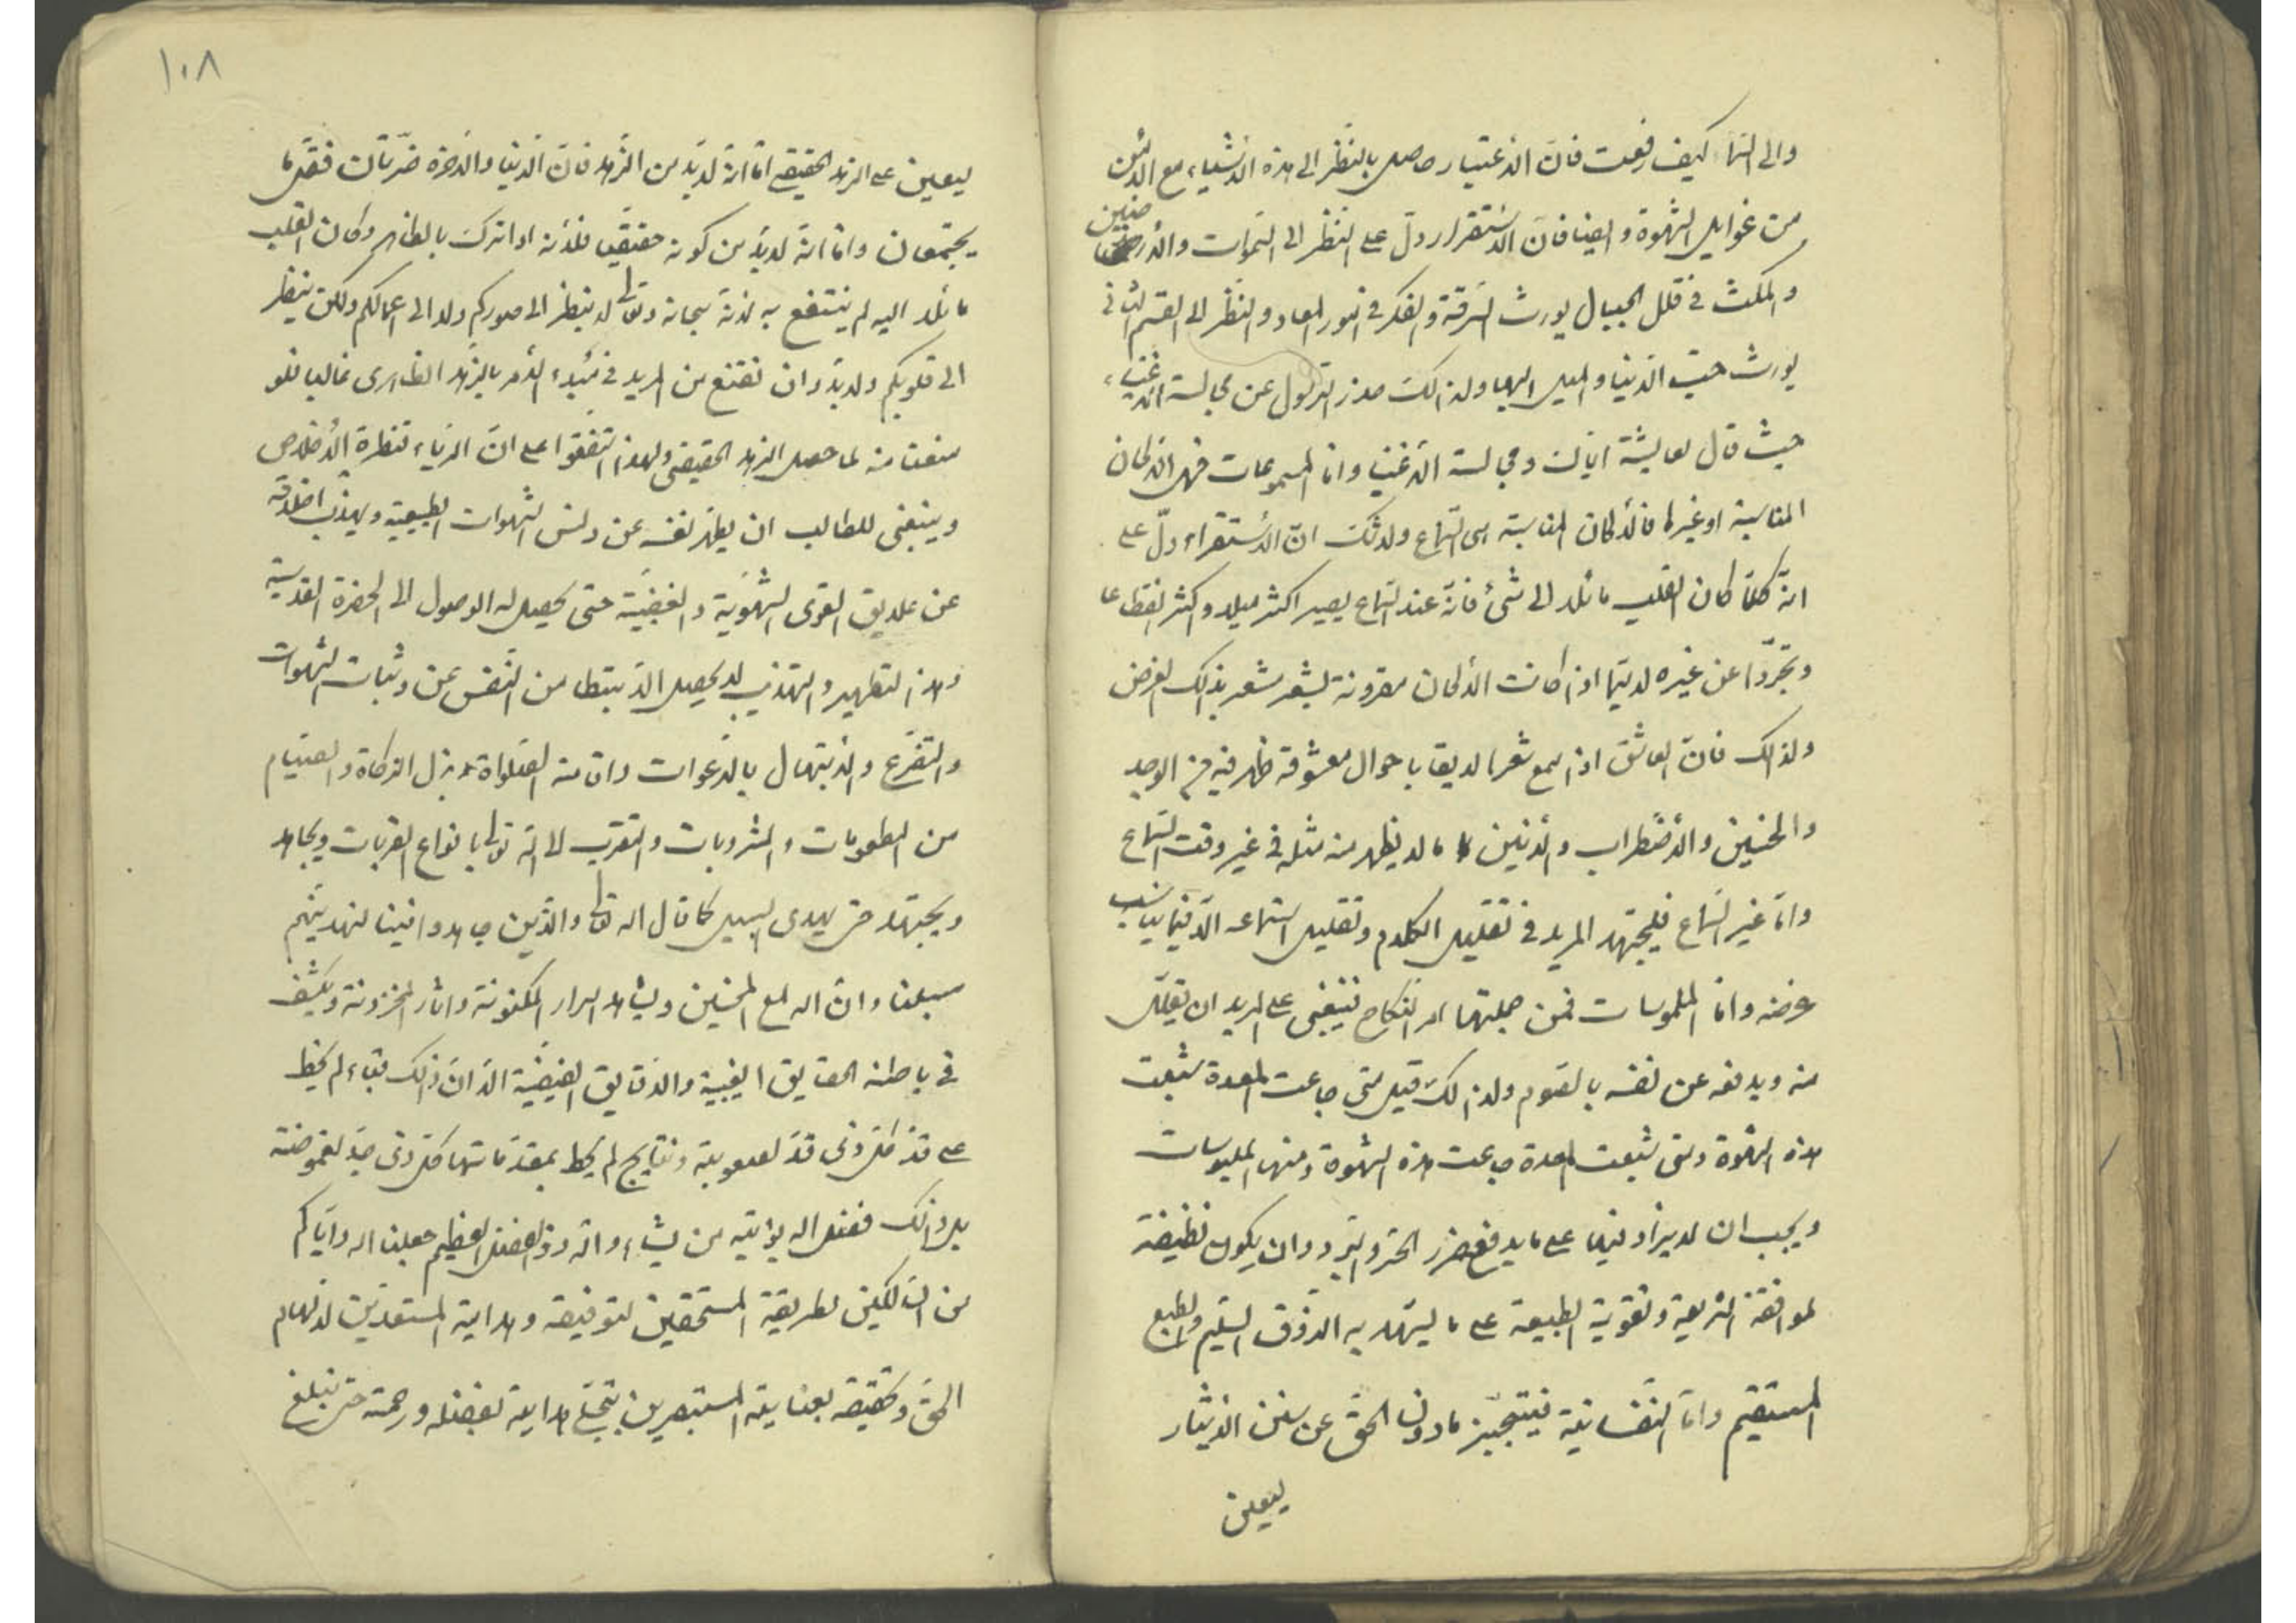 والى السماء كيف رفعت فان الاعتبار حاصل بالنظر الى هذه الاشياء مع الامن
من غوايل الشهوة وايضا فان الاستقرار دل على النظر الى السموات والارضين
والمكث فى قلل الجبال يورث الرقة والفكر فى امور المعاد والنظر الى القسم الثانى
يورث حب الدنيا والميل اليها ولذالك حذر الرسول عن مجالسة الاغنياء
حيث قال لعايشة اياك ومجالسة الاغنيا واما المسموعات فهى الالحان
المناسبة او غيرها فالالحان المناسبة هى السماع ولا شك ان الاستقراء دل على
انه كلما كان القلب مائلا الى شئ فانه عند السماع يصير اكثر ميلا واكثر انقطاعا
وتجردا عن غيره لا سيما اذا كانت الالحان مقرونة بشعر مشعر بذالك الغرض
ولذالك فان العاشق اذا سمع شعرا لايقا باحوال معشوقه ظهر فيه من الوجد
والحنين والاضطراب والانين ما لا يظهر منه مثله فى غير وقت السماع
واما غير السماع فليجتهد المريد فى تقليل الكلام وتقليل استماعه الا فيما يناسب
غرضه واما الملموسات فمن جملتها امر النكاح فينبغى على المريد ان يقلل
منه ويدفعه عن نفسه بالصوم ولذالك قيل متى جاعت المعدة شبعت
هذه الشهوة ومتى شبعت المعدة جاعت هذه الشهوة ومنها الملبوسات
ويجب ان لا يزاد فيها على ما يدفع ضرر الحر والبرد وان يكون نظيفة
لموافقة الشريعة وتقوية الطبيعة على ما يشهد به الذوق السليم والطبع
المستقيم واما النفسانية فيتجيز مادون الحق عن سنن الايثار
ليعين
١٠٨
ليعين على الزهد الحقيقى اما انه لا بد من الزهد فان الدنيا والاخرة ضرتان فقل ما
يجتمعان واما انه لا بد من كونه حقيقيا فلانه اذا ترك بالظاهر وكان القلب
مائلا اليه لم ينتفع به لانه سبحانه وتعالى لا ينظر الى صوركم ولا الى اعمالكم ولكن ينظر
الى قلوبكم ولا بد وان نقنع من المريد فى مبدء الامر بالزهد الظاهرى غالبا فلو
منعنا منه لما حصل الزهد الحقيقى ولهذا اتفقوا على ان الرياء قنطرة الاخلاص
وينبغى للطالب ان يطهر نفسه عن دنس الشهوات الطبيعية ويهذب اخلاقه
عن علايق القوى الشهوية والغضبية حتى يحصل له الوصول الى الحضرة القدسية
وهذا التطهير والتهذيب لا يحصل الا بتطا من النفس عن وثبات الشهوات
والتضرع والابتهال بالدعوات واقامة الصلواة وبذل الزكاة والصيام
من المطعومات والمشروبات والتقرب الى الله تعالى بانواع القربات ويجاهد
ويجتهد حتى يهدى السبيل كما قال الله تعالى والذين جاهدوا فينا لنهدينهم
سبلنا وان الله لمع المحسنين ويشاهد اسرار المكنونة واثار المخزونة ويكشف
فى باطنه الحقايق الغيبية والدقايق الفيضية الا ان ذالك قباء لم يخط
على قد كل ذى قد لصعوبته ونتايج لم يحط بمقدماتها كل ذى جد لغموضته
بل ذالك فضل الله يؤتيه من يشاء والله ذو الفضل العظيم جعلنا الله واياكم
من السالكين لطريقة المستحقين لتوفيقه وهداية المستعدين لالهام
الحق وتحقيقه بعناية المستبصرين بتجلى هدايته بفضله ورحمته حتى نبلغ